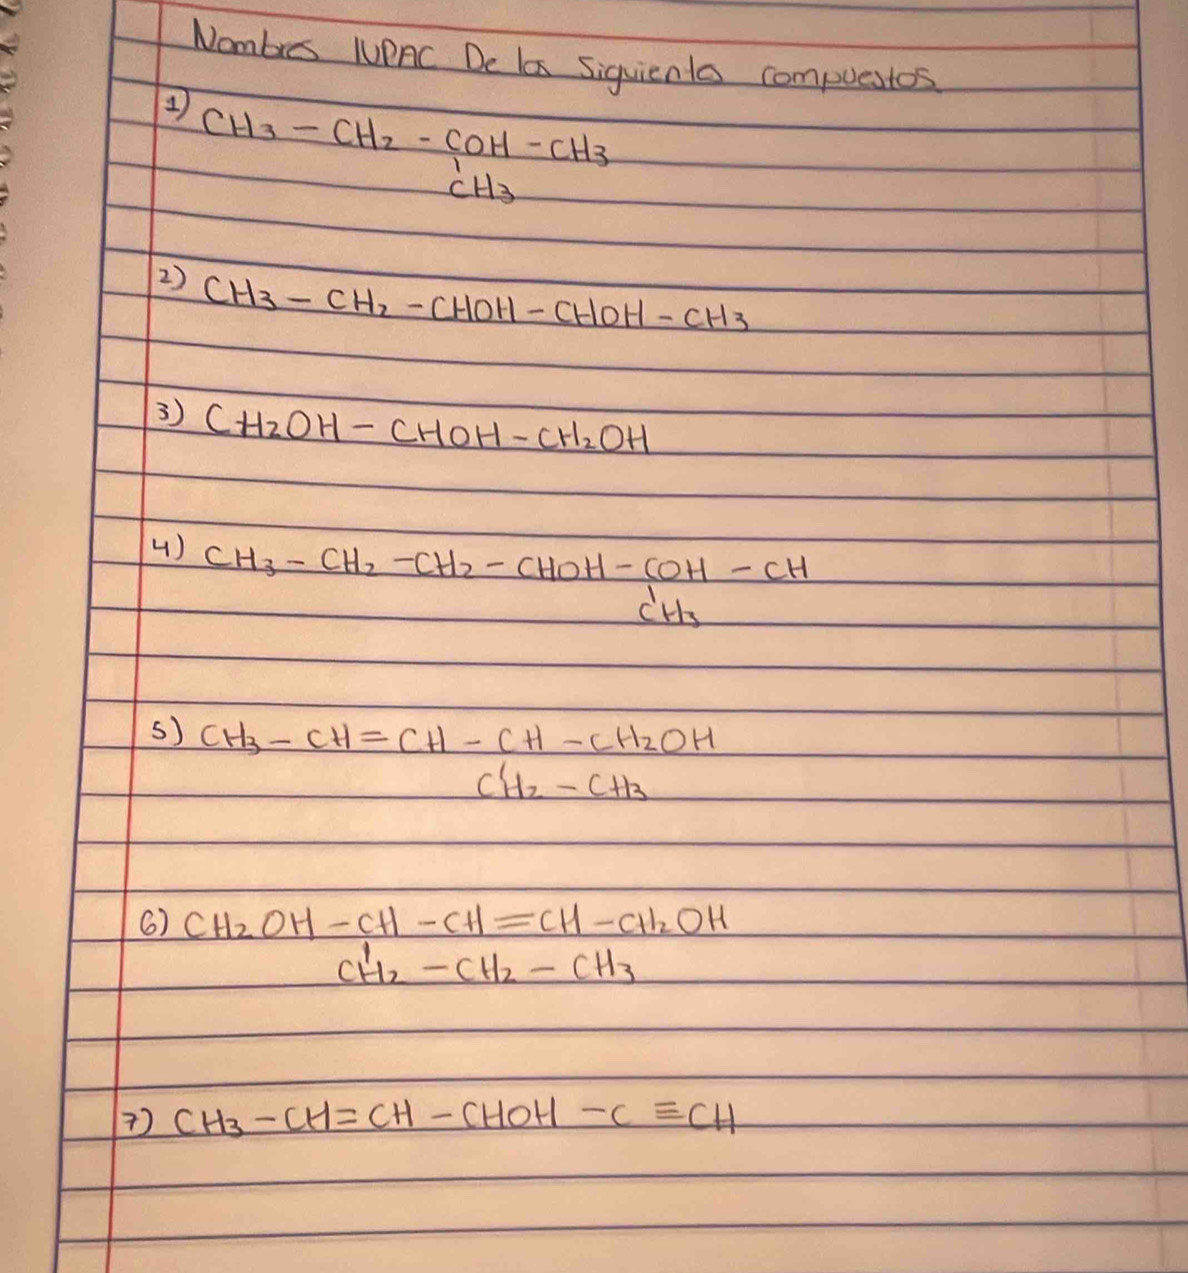 Nombres IUPAC De los siguientes compuestos
1) CH3 - CH2 - COH - CH3
CH3
2) CH3 - CH2 - CHOH - CHOH - CH3
3) CH2OH - CHOH - CH2OH
4) CH3 - CH2 - CH2 - CHOH - COH - CH
CH3
5) CH3 - CH = CH - CH - CH2OH
CH2 - CH3
6) CH2OH - CH - CH = CH - CH2OH
CH2 - CH2 - CH3
7) CH3 - CH = CH - CHOH - C ≡ CH